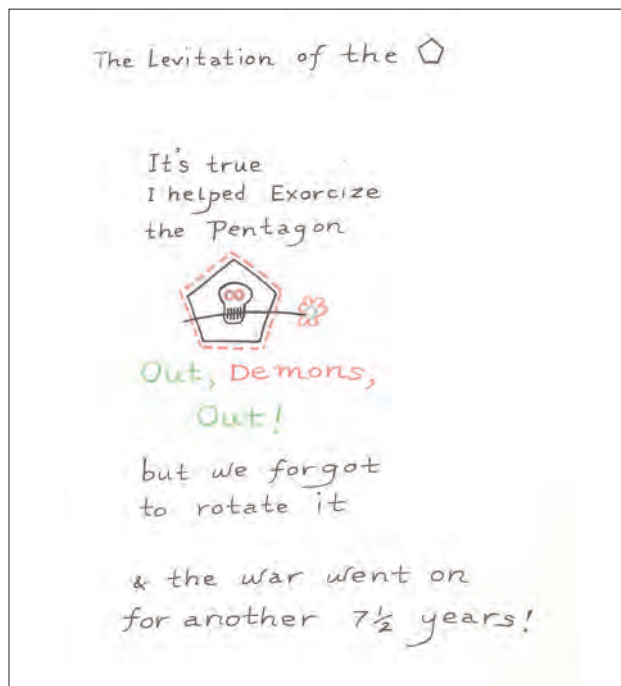 The Levitation of the ⬠
It's true
I helped Exorcize
the Pentagon
Out, Demons,
Out!
but we forgot
to rotate it
& the war went on
for another 7½ years!